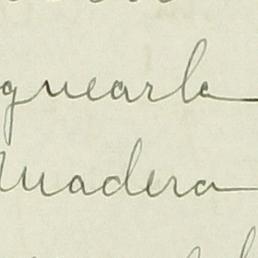 guearla
Madera